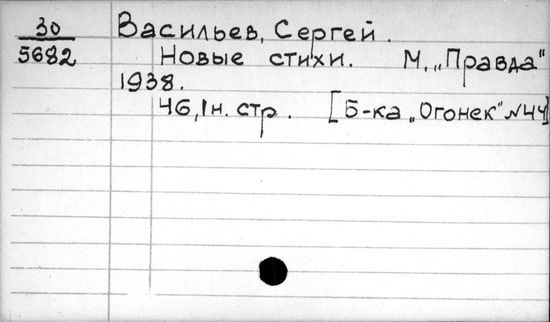 30
5682
Васильев, Сергей.
Новые стихи. М, „Правда"
1938.
46, 1 н. стр. [Б-ка „Огонек" №44]